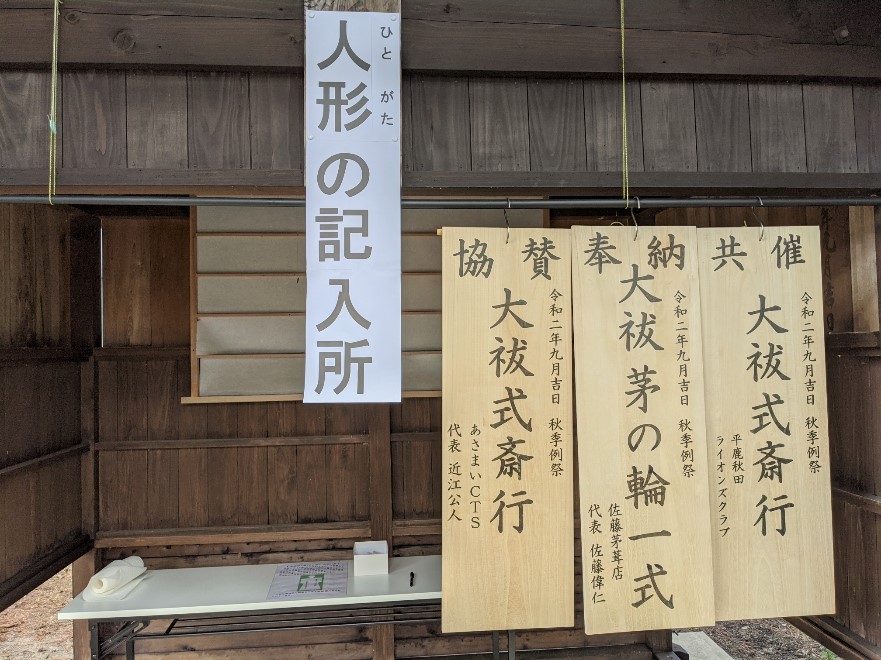 人形の記入所
ひとがた
共催
令和二年九月吉日 秋季例祭
大祓式斎行
平鹿秋田
ライオンズクラブ
奉納
令和二年九月吉日 秋季例祭
大祓茅の輪一式
佐藤茅葺店
代表 佐藤偉仁
協賛
令和二年九月吉日 秋季例祭
大祓式斎行
あさまいCTS
代表 近江公人